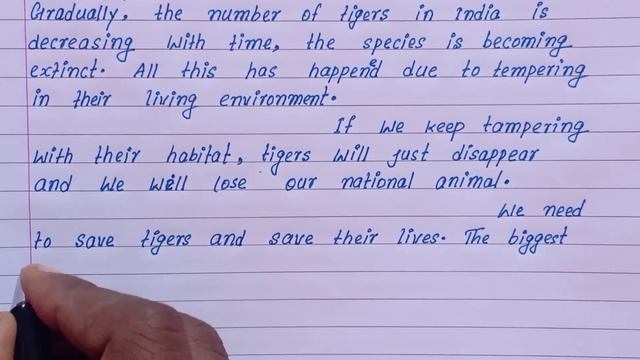 Gradually, the number of tigers in India is
decreasing with time, the species is becoming
extinct. All this has happened due to tempering
in their living environment.
If we keep tampering
with their habitat, tigers will just disappear
and we will lose our national animal.
We need
to save tigers and save their lives. The biggest